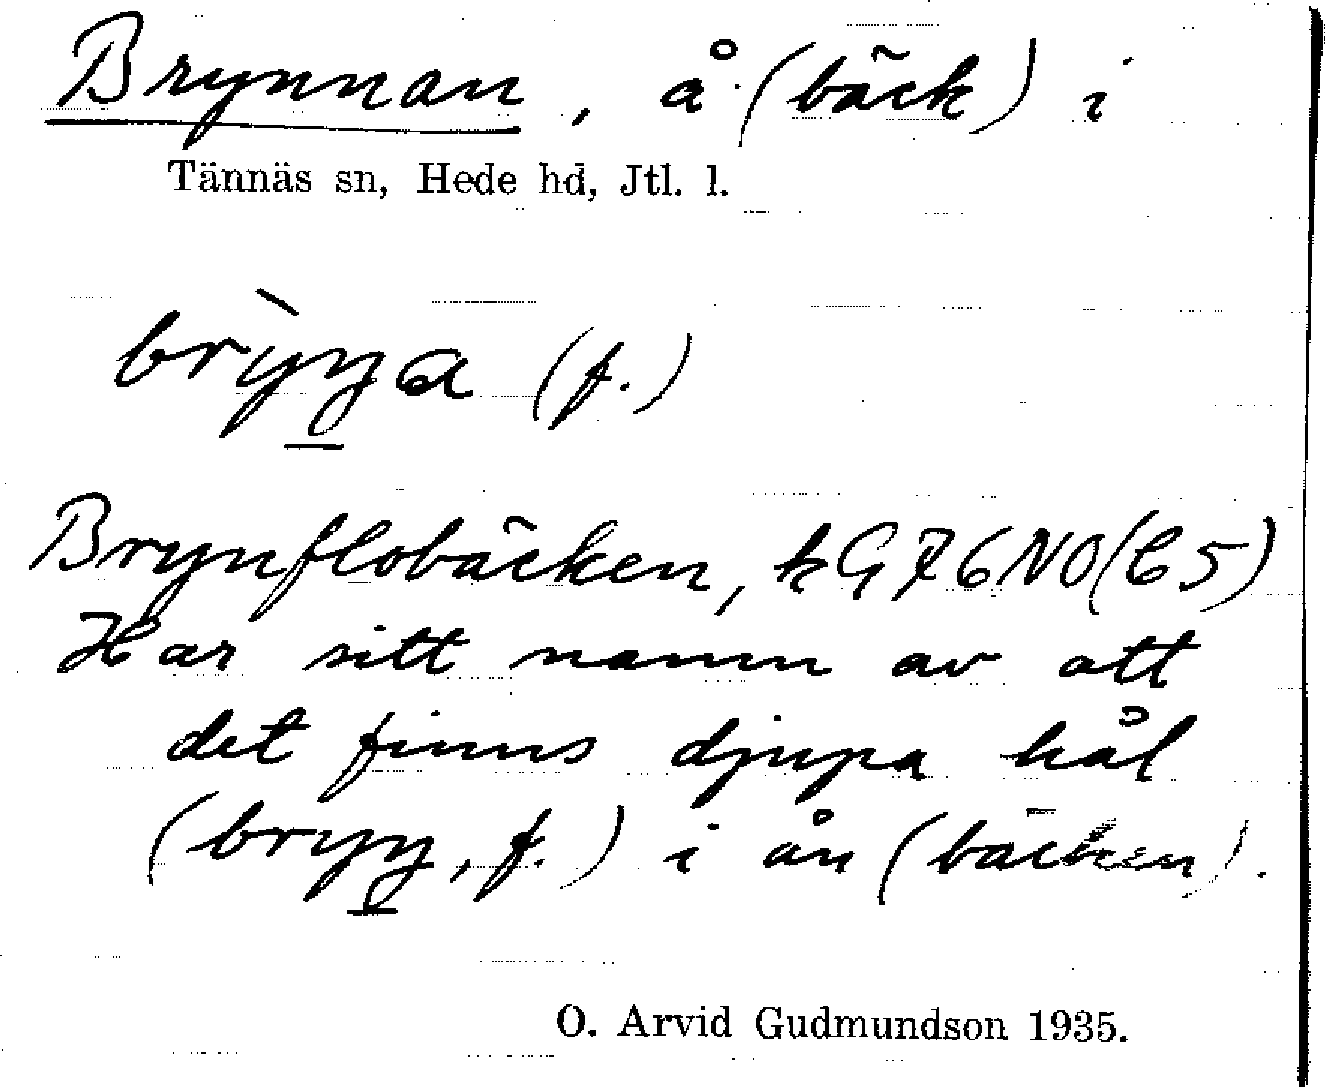 Brynnan, å (bäck) i
Tännäs sn, Hede hd, Jtl. l.
brỳŋa (f.)
Brynflobäcken, kG76NO(65)
Har sitt namn av att
det finns djupa hål
(bryŋ, f.) i ån (bäcken).
O. Arvid Gudmundson 1935.